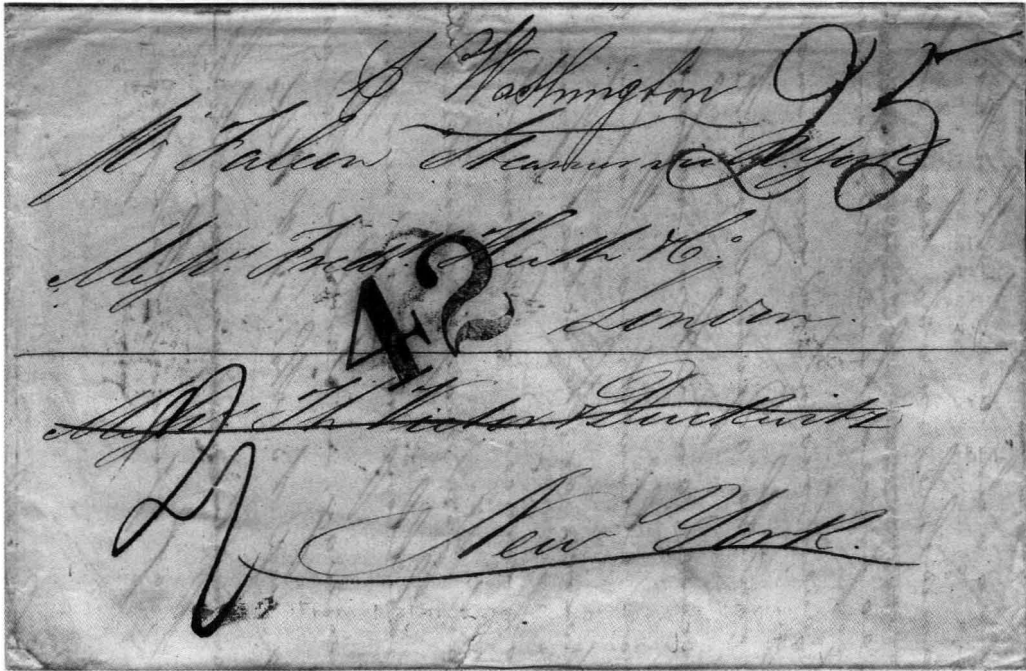 p Washington 25
pr Falcon Steamer via N. York
Messrs. Fredk. Huth & Co.
London.
42
Messrs. Th. Victor & Duckwitz
New York.